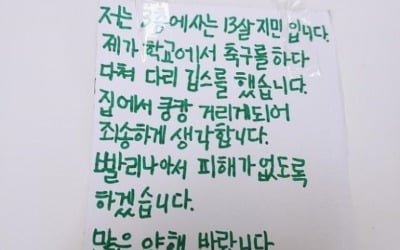 저는 3층에 사는 13살 지민 입니다.
제가 학교에서 축구를 하다
다쳐 다리 깁스를 했습니다.
집에서 쿵쾅 거리게되어
죄송하게 생각합니다.
빨리나아서 피해가 없도록
하겠습니다.
많은 양해 바랍니다